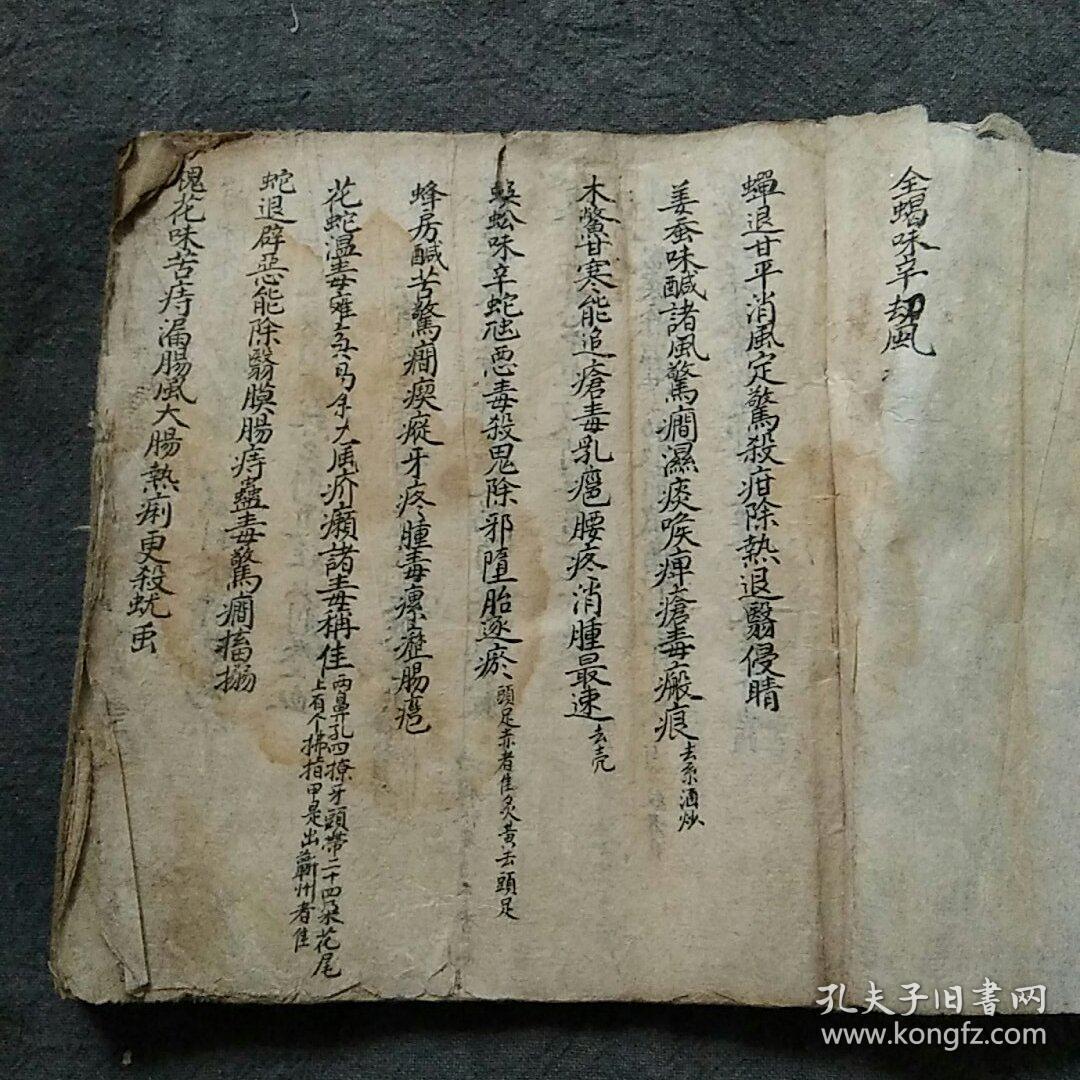 全蝎味辛劫風
蟬退甘平消風定驚殺疳除熱退翳侵睛
姜蚕味鹹諸風驚癇濕痰喉痺瘡毒瘢痕去糸酒炒
木鱉甘寒能追瘡毒乳癰腰疼消腫最速去壳
蜈蚣味辛蛇虺恶毒殺鬼除邪墮胎逐瘀頭足赤者佳炙黄去頭足
蜂房鹹苦驚癇瘈瘲牙疼腫毒瘰癧腸癰
花蛇温毒癱
大風疥癩諸毒稱佳
両鼻孔四撩牙頭帶二十四朶花尾
上有个拂指甲是出蘄州者佳
蛇退辟惡能除翳膜腸痔蠱毒驚癇搐搦
槐花味苦痔漏腸風大腸熱痢更殺蚘虫
孔夫子旧書网
www.kongfz.com